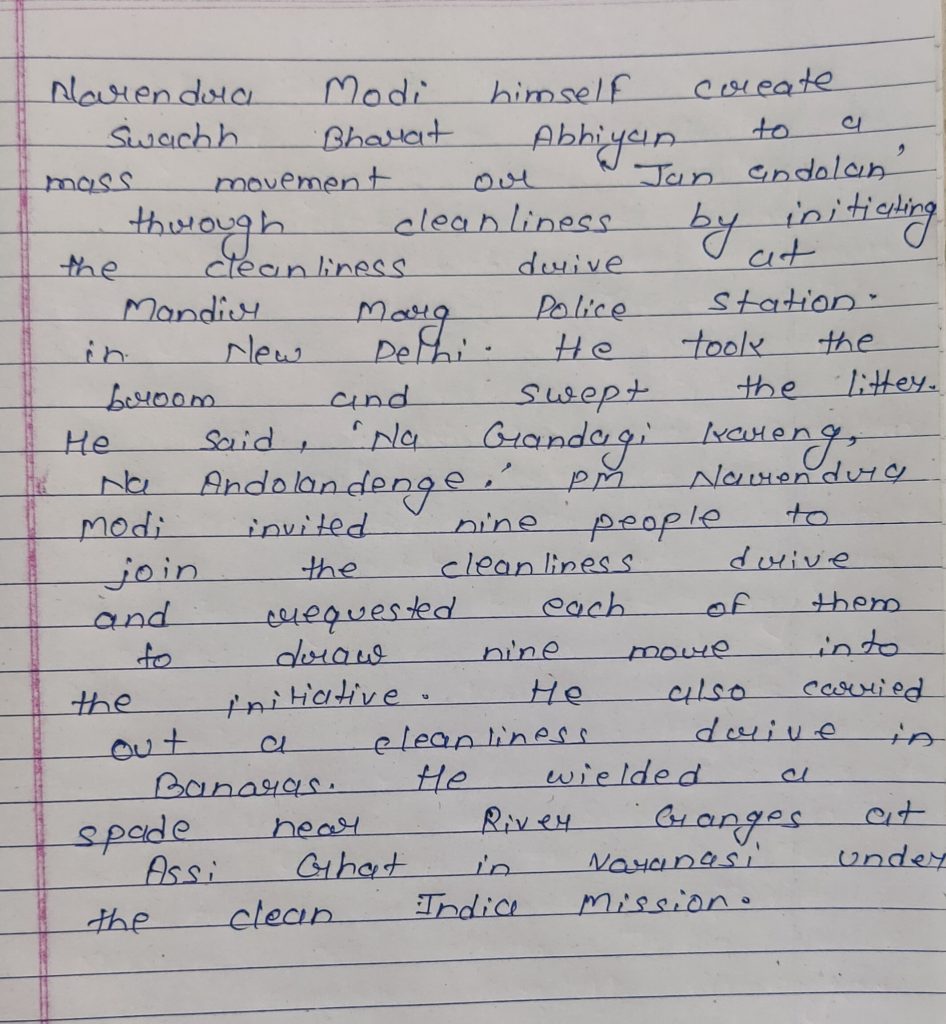 Narendra Modi himself create
Swachh Bharat Abhiyan to a
mass movement or 'Jan andolan'
through cleanliness by initiating
the cleanliness drive at
Mandir Marg Police Station.
in New Delhi. He took the
broom and swept the litter.
He said, 'Na Gandagi kareng,
Na Andolandenge.' PM Narendra
Modi invited nine people to
join the cleanliness drive
and requested each of them
to draw nine more into
the initiative. He also carried
out a cleanliness drive in
Banaras. He wielded a
spade near River Ganges at
Assi Ghat in Varanasi under
the clean India Mission.